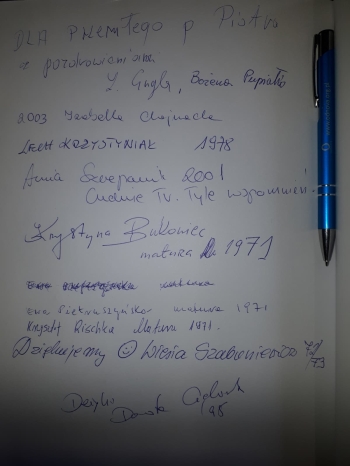 DLA PRZEMIŁEGO p Piotra
z podziękowaniami
L. Gugla, Bożena Pupiałło
2003 Izabella Chojnacka
LECH KRZYSTYNIAK 1978
Anna Szczepanik 2001
Cudnie Tu. Tyle wspomnień.
Krystyna Bukowiec
matura 1971
Ewa Pietruszyńska matura 1971
Krzysztof Rischka Matura 1971.
Dziękujemy ☺ Wiesia Szabuniewicz 72/73
Dorota
98